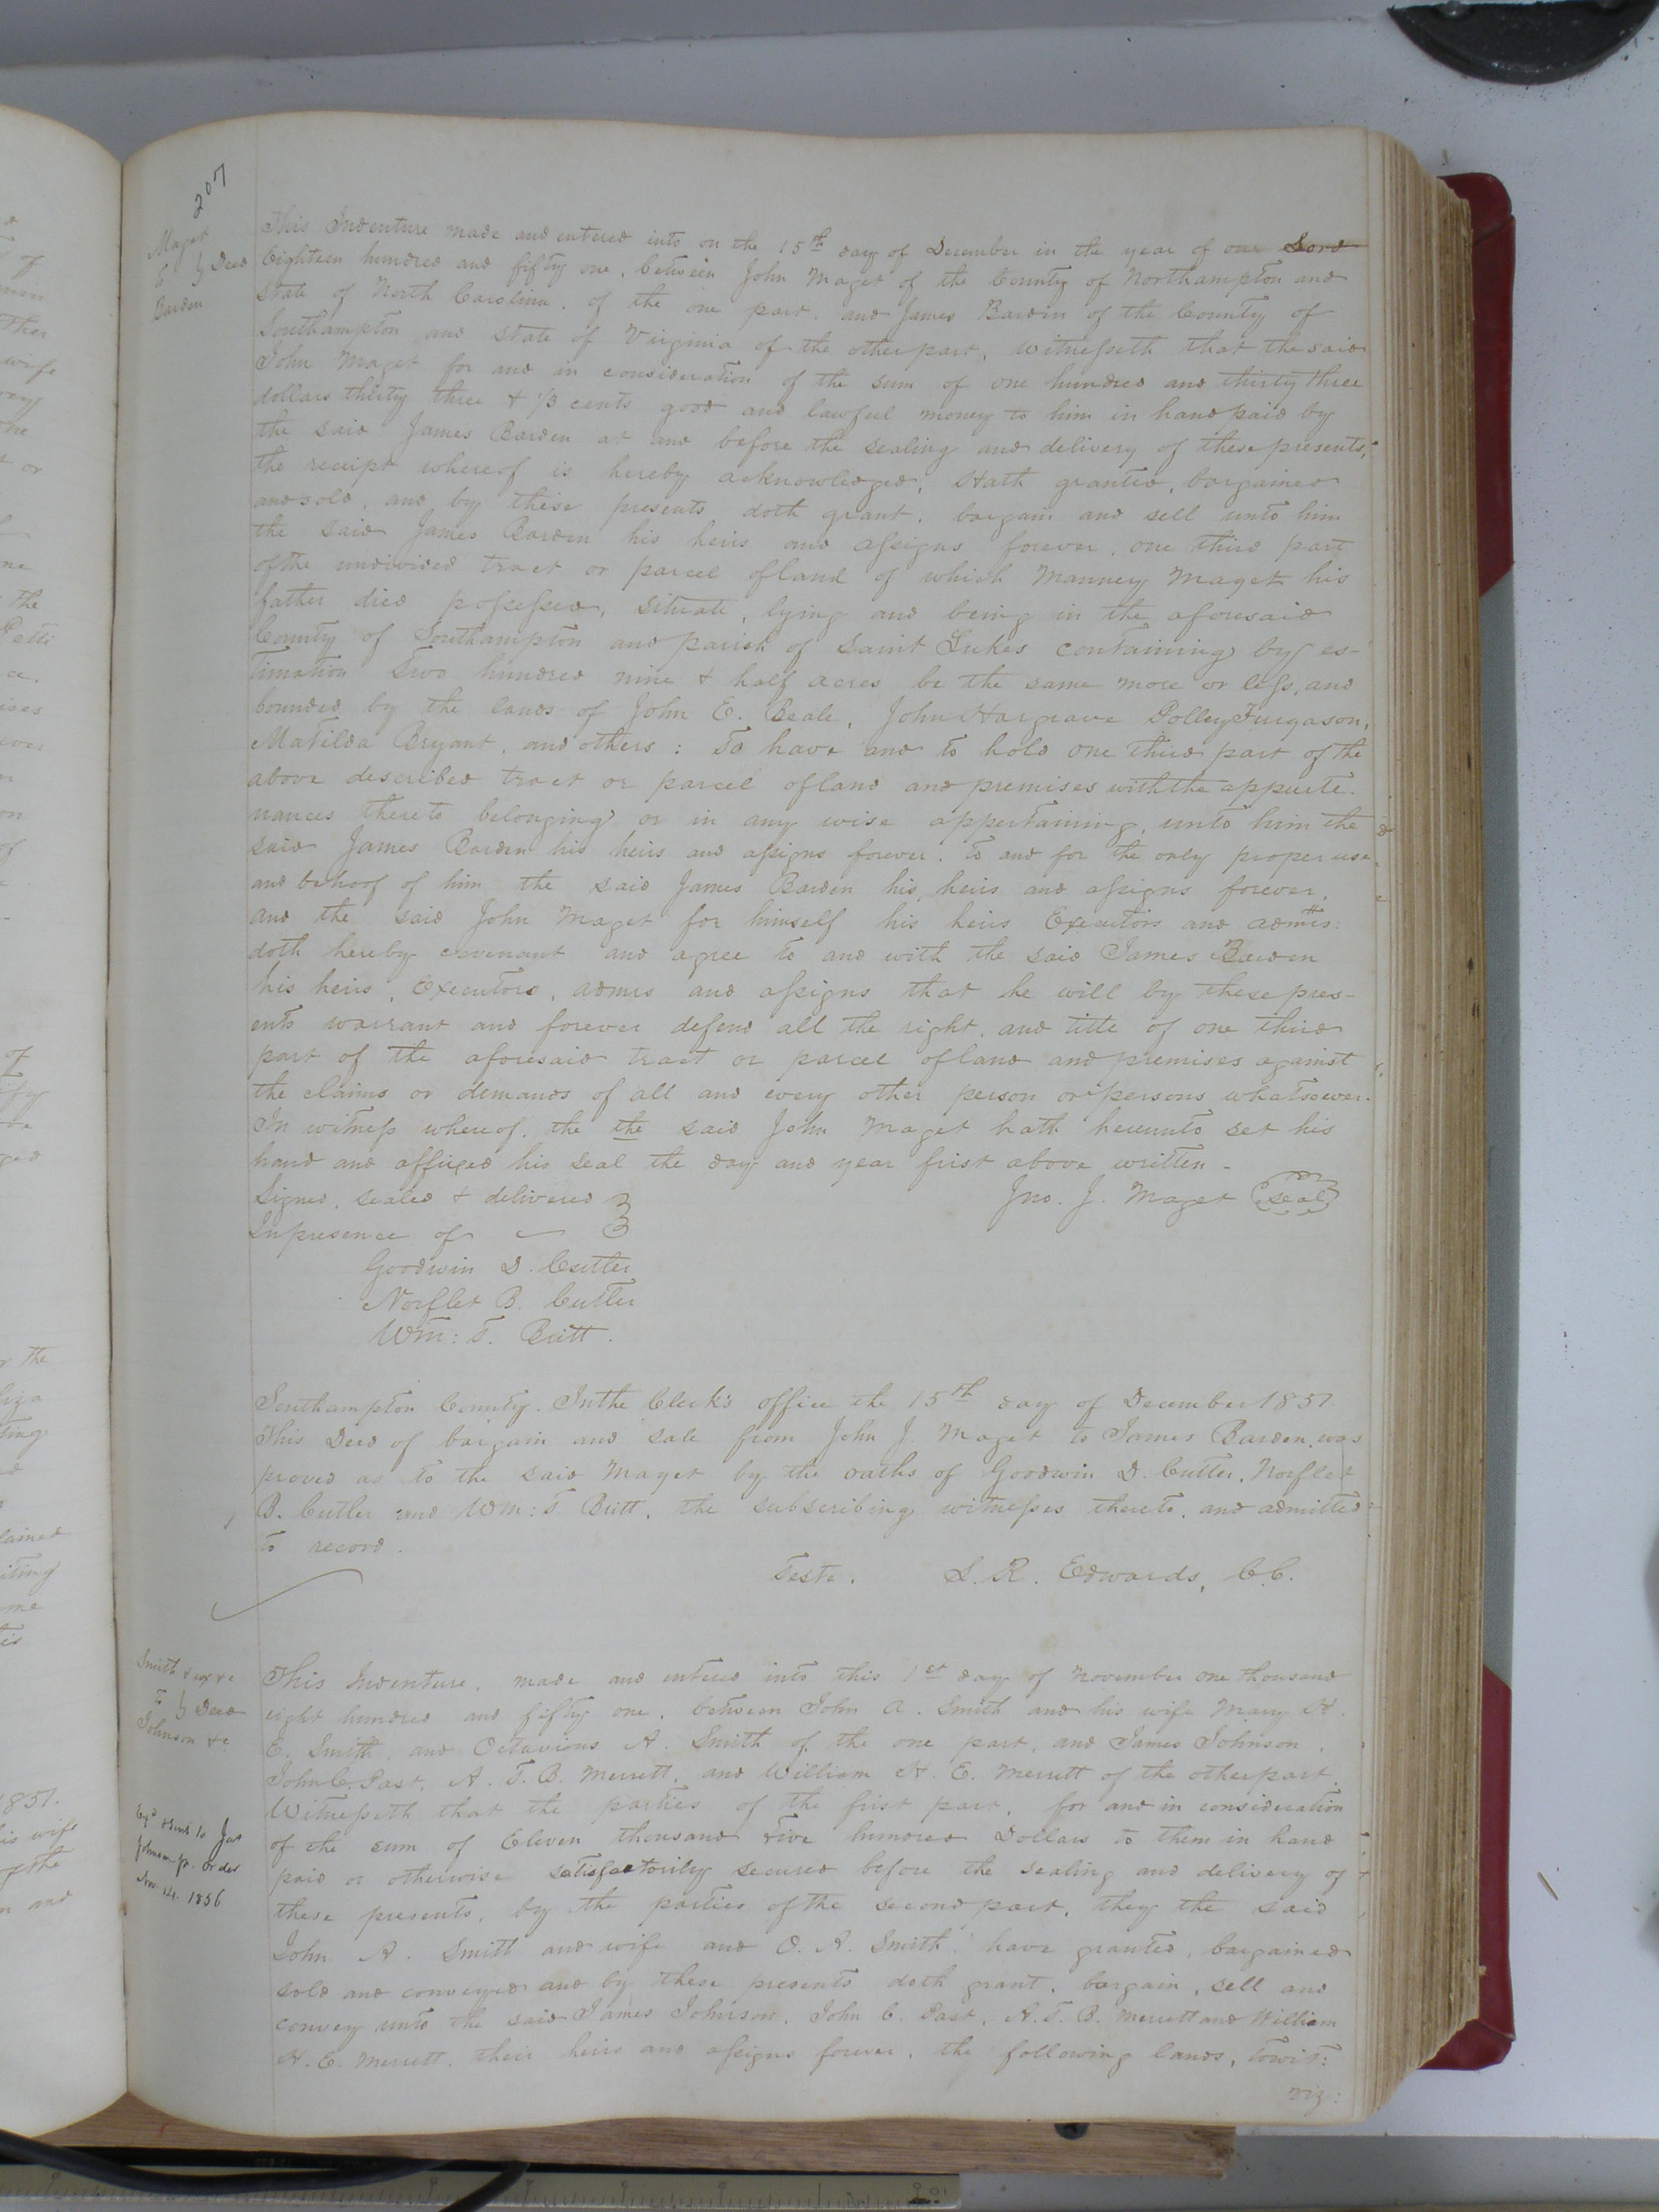 207
Maget
to } Deed
Barden
This Indenture made and entered into on the 15th day of December in the year of our Lord
Eighteen hundred and fifty one, between John Maget of the County of Northampton and
State of North Carolina, of the one part, and James Barden of the County of
Southampton and State of Virginia of the other part, Witnesseth that the said
John Maget for and in consideration of the sum of one hundred and thirty three
dollars thirty three & 1/3 cents good and lawful money to him in hand paid by
the said James Barden at and before the sealing and delivery of these presents,
the receipt whereof is hereby acknowledged, Hath granted, bargained
and sold, and by these presents doth grant, bargain and sell unto him
the said James Barden his heirs and assigns forever, one third part
of the undivided tract or parcel of land of which Manney Maget his
father died possessed, situate, lying and being in the aforesaid
County of Southampton and parish of Saint Lukes containing by es-
timation Two hundred nine & half acres be the same more or less, and
bounded by the lands of John E. Beale, John Hargrave Polley Furgason,
Matilda Bryant, and others: To have and to hold one third part of the
above described tract or parcel of land and premises with the appurte-
nances thereto belonging or in any wise appertaining, unto him the
said James Barden his heirs and assigns forever, to and for the only proper use
and behoof of him the said James Barden his, heirs and assigns forever,
and the said John Maget for himself his heirs Executors and admrs:
doth hereby covenant and agree to and with the said James Barden
his heirs, Executors, admrs and assigns that he will by these pres-
ents warrant and forever defend all the right, and title of one third
part of the aforesaid tract or parcel of land and premises against
the claims or demands of all and every other person or persons whatsoever.
In witness whereof, the the said John Maget hath hereunto set his
hand and affixed his seal the day and year first above written-
Signed, sealed & delivered }
In presence of }
Jno. J. Maget (Seal)
Goodwin D. Cutler
Norflet B. Cutler
Wm: T. Britt.
Southampton County. In the Clerk's office the 15th day of December 1851.
This Deed of bargain and sale from John J. Maget to James Barden, was
proved as to the said Maget by the oaths of Goodwin D. Cutler, Norflet
B. Cutler and Wm: T Britt, the subscribing witnesses thereto, and admitted
to record.
Teste, S. R. Edwards, C.C.
Smith & ux &c
to } Deed
Johnson &c
This Indenture, made and entered into this 1st day of November one thousand
eight hundred and fifty one, between John A. Smith and his wife Mary H.
E. Smith, and Octavious A. Smith of the one part, and James Johnson,
John C. Past, A. T. B. Merrett, and William H. E. Merrett of the other part.
Witnesseth that the parties of the first part, for and in consideration
of the sum of Eleven thousand Five hundred Dollars to them in hand
paid or otherwise satisfactorily secured before the sealing and delivery of
these presents, by the parties of the second part, they the said
John A. Smith and wife and O. A. Smith have granted, bargained
sold and conveyed and by these presents doth grant, bargain, sell and
convey unto the said James Johnson, John C. Past, A. T. B. Merrett and William
H. E. Merrett, their heirs and assigns forever, the following lands, towit:
viz:
Johnson pr. order
Nov. 14. 1856